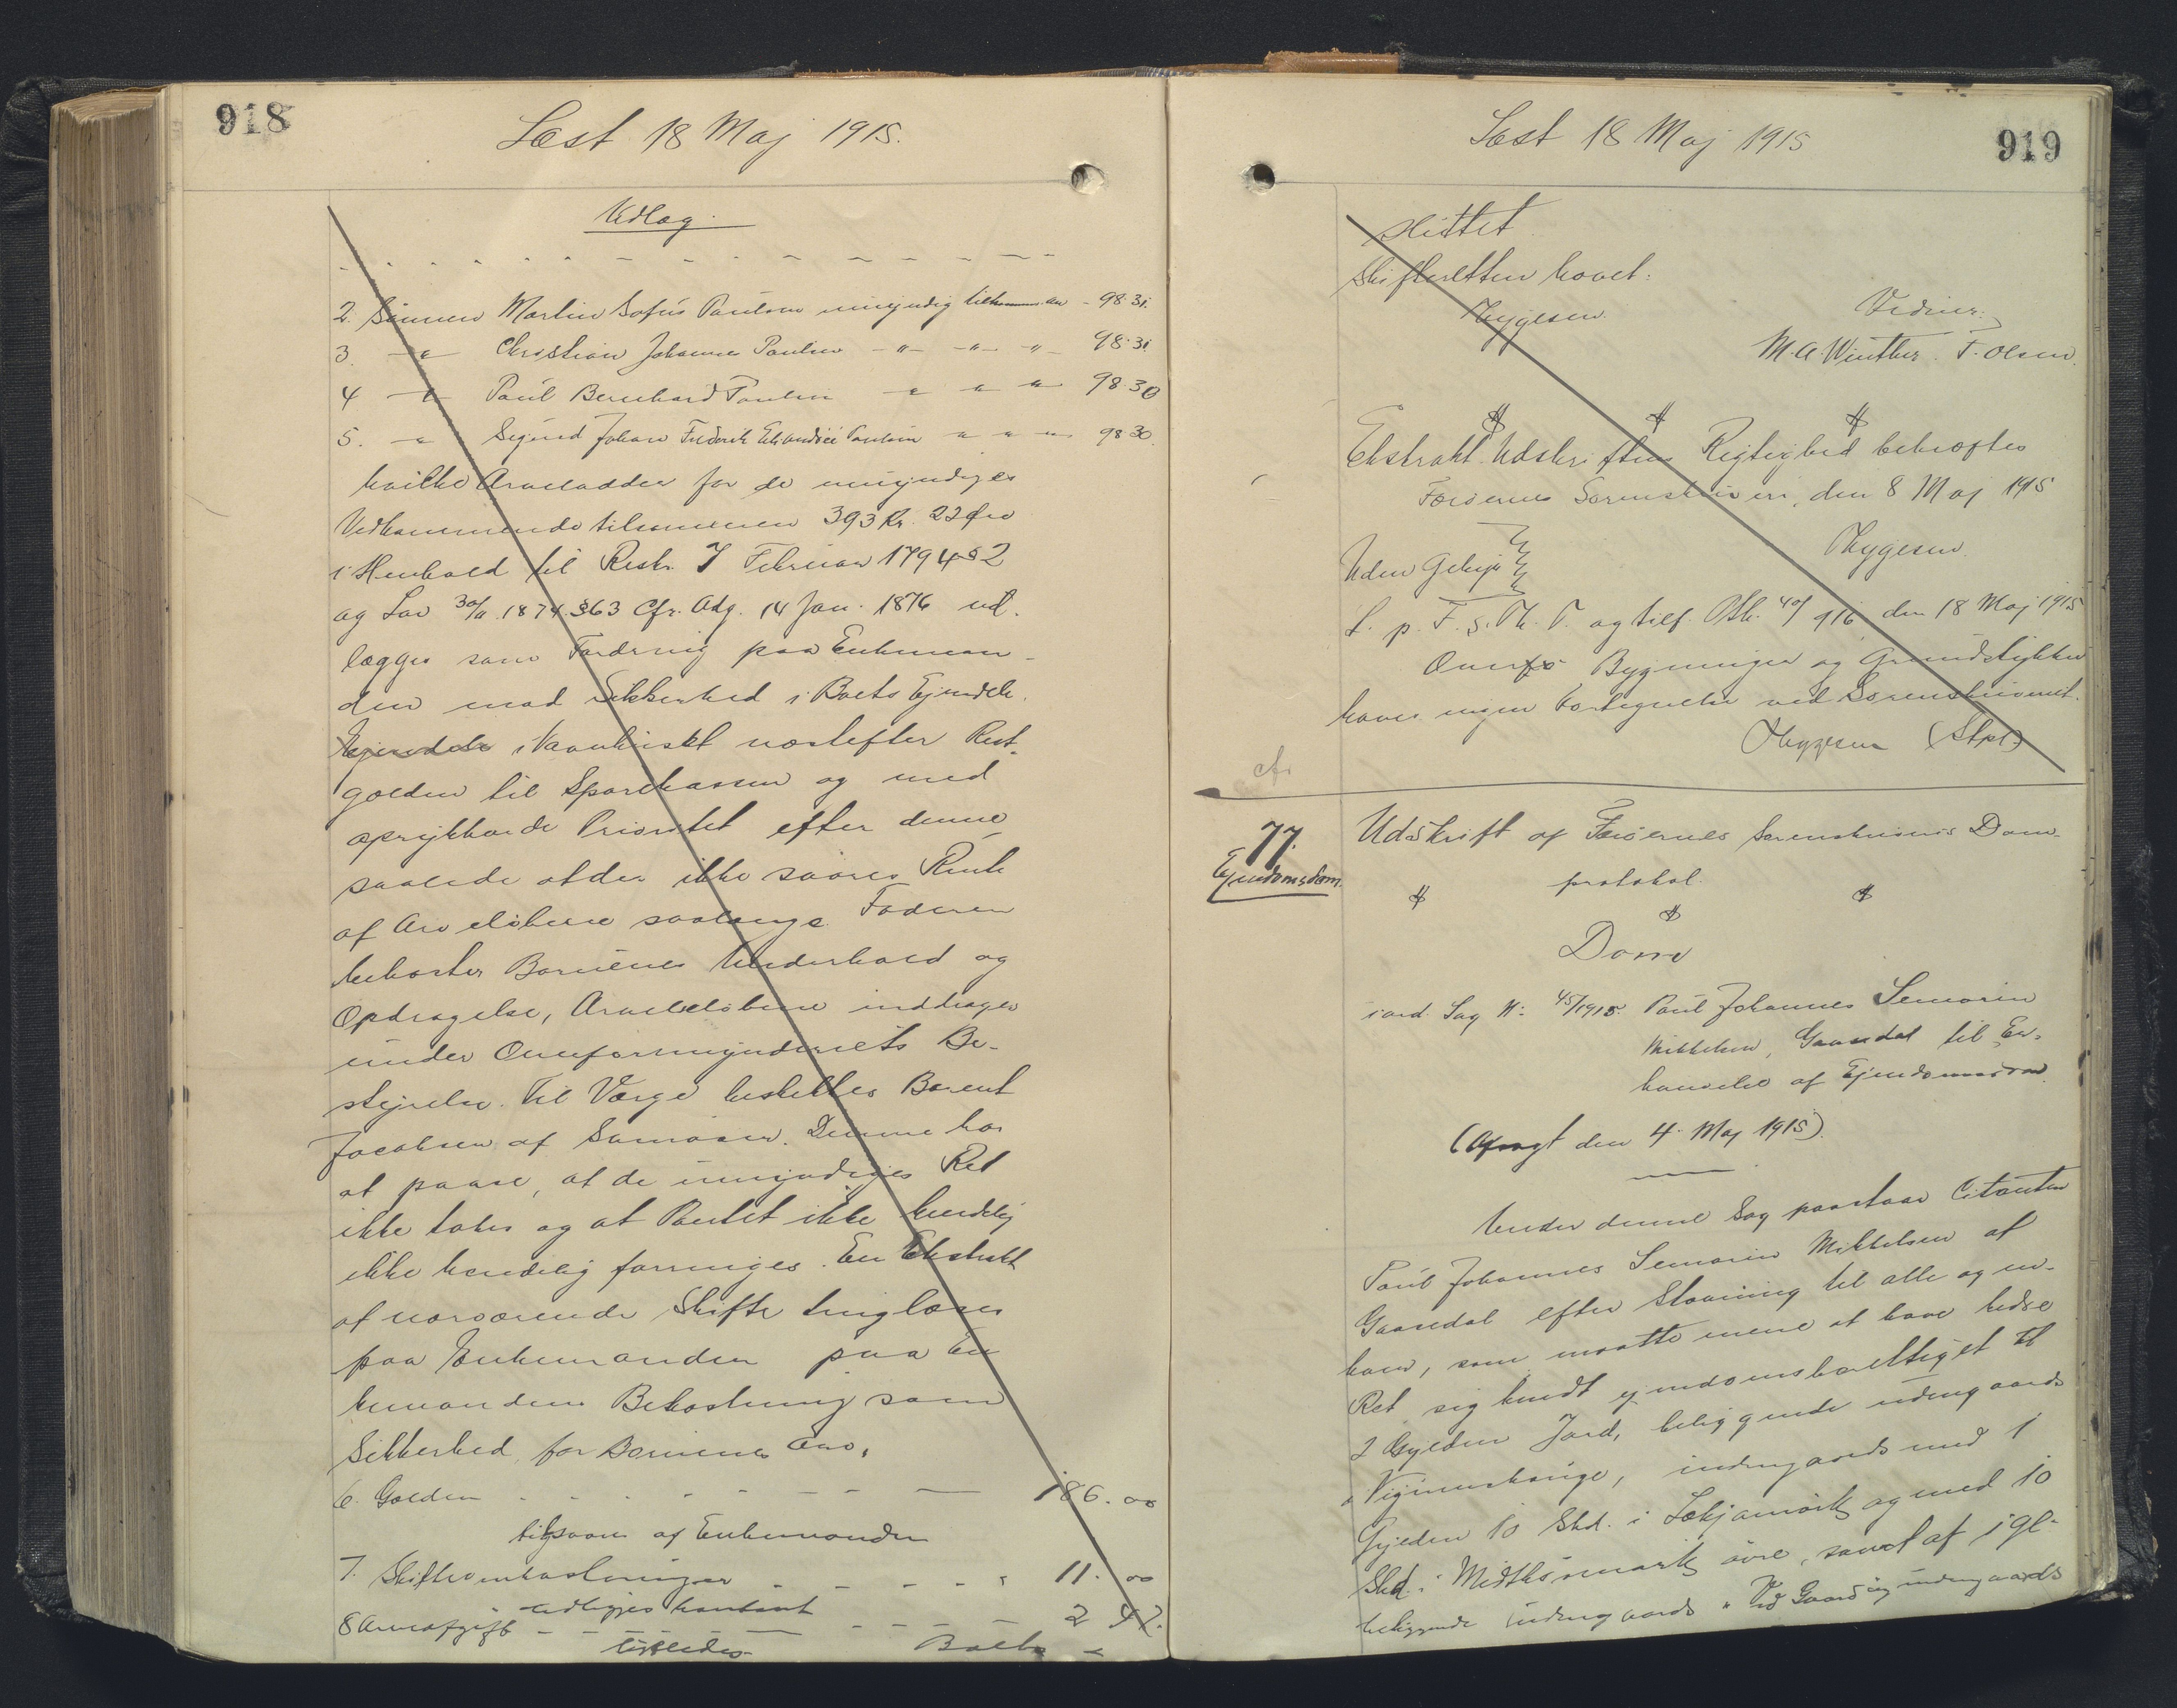 918
Læst 18 Maj 1915.
Udlæg.
2. Sønnen Martin Sofus Paulsen umyndig tilkommer - 98.31.
3. -"- Christian Johannes Poulsen -"- -"- -"- 98.31
4 -"- Paul Bernhard Poulsen " " " 98.30
5. -"- Sigurd Johan Frederik Poulsen " " " 98 30.
hvilke Arvelodder for de umyndiges
Vedkommende tilsammen 393 Kr. 22 Øre
i Henhold til Reskr. 7 Februar 1794 § 2
og Lov 30/11 1874 § 63 Cfr. Adg. 14 Jan. 1876 ud-
lægges som Fordring paa Enkeman-
den mod Sikkerhed i Boets Ejendele.
Ejendele i Navnhuset næstefter Rest-
gælden til Sparekassen og med
oprykkende Prioritet efter denne
saalede at der ikke svares Rente
af Arvelodderne saalænge Faderen
bekoster Børnenes Underhold og
Opdragelse, Arvelodderne inddrages
under Overformynderiets Be-
styrelse. Til Værge beskikkes Berent
Jacobsen af Sumbøen. Denne har
at paase, at de umyndiges Ret
ikke tabes og at Pantet ikke kendelig
ikke kendelig forringes. En Ekstrakt
af nærværende Skifte tinglæses
paa Enkemanden paa En
kemandens Bekostning som
Sikkerhed for Børnenes Arv.
6. Gælden - - - - - - - 186.00
tilsvares af Enkemanden
7. Skifteomkostninger - - - - - 11.00
udlægges kontant
8 Arveafgift - - - - - - - - 2 47.
ligeledes Boets -
919
Læst 18 Maj 1915
sluttet
Skifteretten hævet.
Thygesen.
Vidner:
M.A. Winther. F. Olsen.
Ekstrakt Udskriftens Rigtighed bekræftes
Færøernes Sorenskriveri, den 8 Maj 1915
Thygesen.
Uden Gebyr
L. p. F. s. Th. T. og tilf. Prk. 40/916 den 18 Maj 1915
Overfø Bygninger og Grundstykker
haves ingen Fortegnelse ved Sorenskriveriet.
Thygesen (Stpl.)
cfr
77.
Ejendomsdom.
Udskrift af Færøernes Sorenskriveris Dom-
protokol.
Dom
i ord. Sag N: 45/1915. Paul Johannes Semarin
Mikkelsen, Gaasedal til Er-
hvervelse af Ejendomsdom.
(Afsagt den 4. Maj 1915).
Under denne Sag paastaar Citanten
Paul Johannes Semarin Mikkelsen af
Gaasedal efter Stævning til alle og en-
hver, som maatte mene at have bedre
Ret sig kendt ejendomsberettiget til
2 Gylden Jord, beliggende udengaards
i indengaards med 1
Gylden 10 Skd. i og med 10
Skd. i øvre, samt af 1 Gl.
beliggende udengaards indengaards